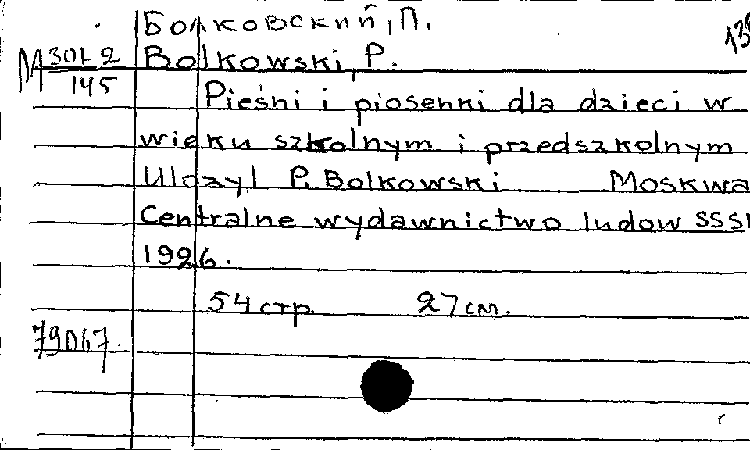 Болковский, П.
Bolkowski, P.
Pieśni i piosenki dla dzieci w
wieku szkolnym i przedszkolnym
Ulozyl P. Bolkowski Moskwa
Centralne wydawnictwo ludow SSS
1926.
54 стр. 27 см.
145